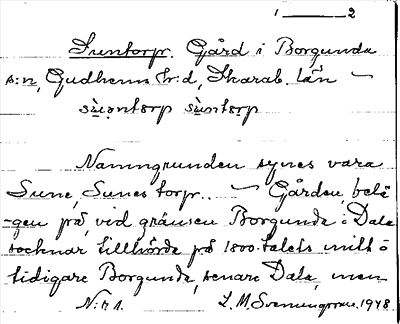 1 ——— 2
Suntorp. Gård i Borgunda
s:n, Gudhems hr:d, Skarab. län —
sùɷntorp sùntorp
Namngrunden synes vara
Sune, Sunes torp. — Gården, belä-
-gen på, vid gränsen Borgunda-Dala
socknar tillhörde på 1800-talets mitt o
tidigare Borgunda, senare Dala, men
N:r 1. L. M. Svenungsson. 1948.